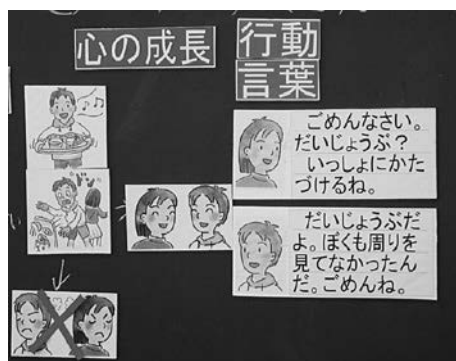 心の成長
行動
言葉
ドン
ごめんなさい。
だいじょうぶ？
いっしょにかた
づけるね。
だいじょうぶだ
よ。ぼくも周りを
見てなかったん
だ。ごめんね。